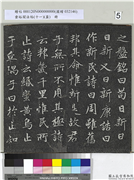 之盤銘曰苟日新日
日新又日新康誥曰
作新民詩曰周雖舊
邦其命惟新是故君
子無所不用其極詩
云邦畿千里惟民所
止詩云緡蠻黃鳥止
于丘隅子曰於止知
5